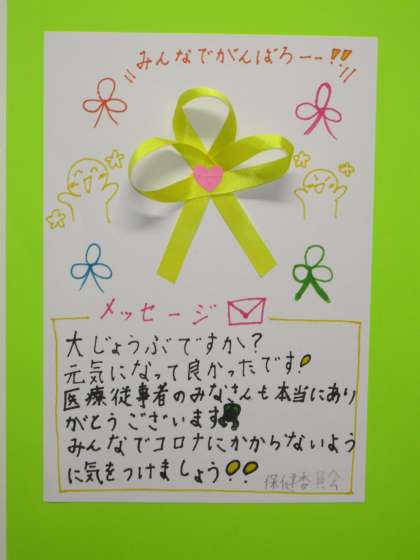 みんなでがんばろーー!!
メッセージ
大じょうぶですか?
元気になって良かったです!
医療従事者のみなさんも本当にあり
がとうございます
みんなでコロナにかからないよう
に気をつけましょう!!
保健委員会